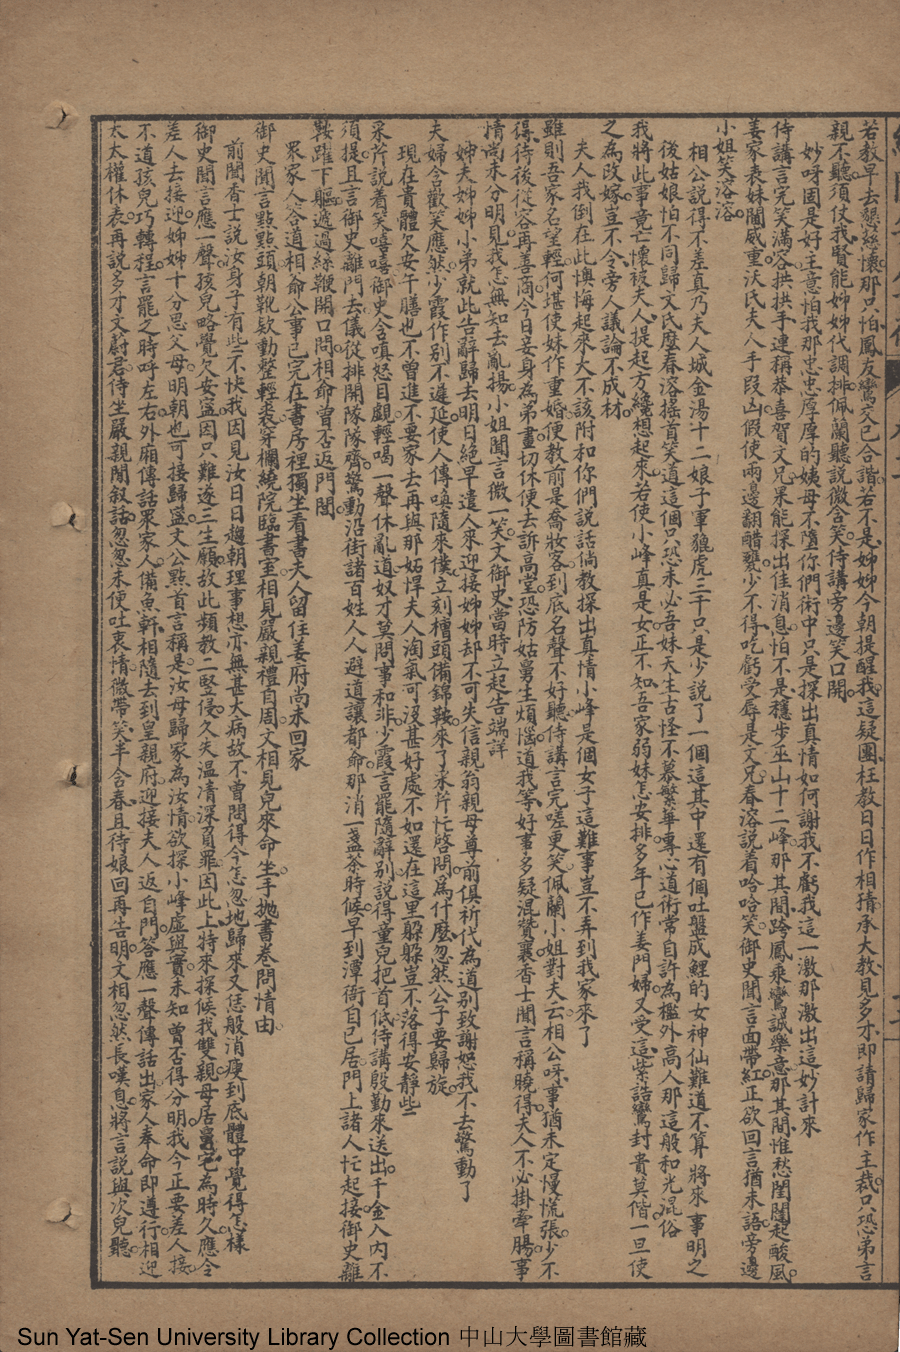 若教早去懇慈懷那只怕鳳友鸞交已合諧若不是姊姊今朝提醒我這疑團枉教日日作相猜承大教見多才即請歸家作主裁只恐弟言
親不聽須仗我賢能姊姊代調排佩蘭聽說微含笑侍講旁邊笑口開
妙呀固是好主意怕我那忠忠厚厚的姨母不墮你們術中只是探出真情如何謝我不虧我這一激那激出這妙計來
侍講言完笑滿容拱拱手連稱恭喜賀文兄果能探出佳消息怕不是穩步巫山十二峰那其間跨鳳乘鸞誠樂意那其間惟愁閨閫起酸風
姜家表妹閫威重沃氏夫人手段凶假使兩邊翻醋甕少不得吃虧受辱是文兄春溶說着哈哈笑御史聞言面帶紅正欲回言猶未語旁邊
小姐笑溶溶
相公說得不差真乃夫人城金湯十二娘子軍狼虎三千只是少說了一個這其中還有個吐盤成鯉的女神仙難道不算將來事明之
後姑娘怕不同歸文氏麼春溶搖首笑道這個只恐未必吾妹天生古怪不慕繁華專心道術常自許為檻外高人那這般和光混俗
我將此事竟亡懷被夫人提起方纔想起來若使小峰真是女正不知吾家弱妹怎安排多年已作姜門婦又受這紫誥鸞封貴莫偕一旦使
之為改嫁豈不令旁人議論不成材
夫人我倒在此懊悔起來大不該附和你們說話倘教探出真情小峰是個女子這難事豈不弄到我家來了
雖則吾家名望輕何堪使妹作重婚便教前是喬妝客到底名聲不好聽侍講言完嗟更笑佩蘭小姐對夫云相公呀事猶未定慢慌張少不
得待後從容再善商今日妾身為弟畫切休便去訴高堂恐防姑舅生煩惱道我等好事多疑混贊襄香士聞言稱曉得夫人不必掛牽腸事
情尚未分明見我怎無知去亂揚小姐聞言微一笑文御史當時立起告端詳
姊夫姊姊小弟就此告辭歸去明日絕早遣人來迎接姊姊却不可失信親翁親母尊前俱祈代為道別致謝恕我不去驚動了
夫婦含歡笑應然少霞作別不遲延使人傳喚隨來僕立刻槽頭備錦鞍來了采芹忙啓問為什麼忽然公子要歸旋
現在貴體欠安午膳也不曾進不要家去再與那妬悍夫人淘氣可沒甚好處不如還在這里躲躲豈不落得安靜些
采芹說着笑嘻嘻御史含嗔怒目覷輕喝一聲休亂道奴才莫問事和非少霞言罷隨辭別說得童兒把首低侍講殷勤來送出千金入內不
須提且言御史離門去儀從排開隊隊齊驚動沿街諸百姓人人避道讓都命那消一盞茶時候早到潭衙自己居門上諸人忙起接御史離
鞍躍下軀遞過絲鞭開口問相爺曾否返門閭
眾家人答道相爺公事已完在書房裡獨坐看書夫人留住姜府尚未回家
御史聞言點點頭朝靴欵動整輕裘穿欄繞院臨書室相見嚴親禮自周文相見兒來命坐手拋書卷問情由
前聞香士說汝身子有些不快我因見汝日日趨朝理事想亦無甚大病故不曾問得今怎忽地歸來又恁般消瘦到底體中覺得怎樣
御史聞言應一聲孩兒略覺欠安寧因只難遂三生願故此頻教二竪侵久失温凊深負罪因此上特來探候我雙親母居甯宅為時久應令
差人去接迎姊姊十分思父母明朝也可接歸寧文公點首言稱是汝母歸家為汝情欲探小峰虛與實未知曾否得分明我今正要差人接
不道孩兒巧轉程言罷之時呼左右外廂傳話眾家人備魚軒相隨去到皇親府迎接夫人返自門答應一聲傳話出家人奉命即遵行相迎
太太權休表再說多才文蔚君侍坐嚴親閒叙話忽忽未便吐衷情微帶笑半含春且待娘回再告明文相忽然長嘆息將言說與次兒聽
Sun Yat-Sen University Library Collection 中山大學圖書館藏